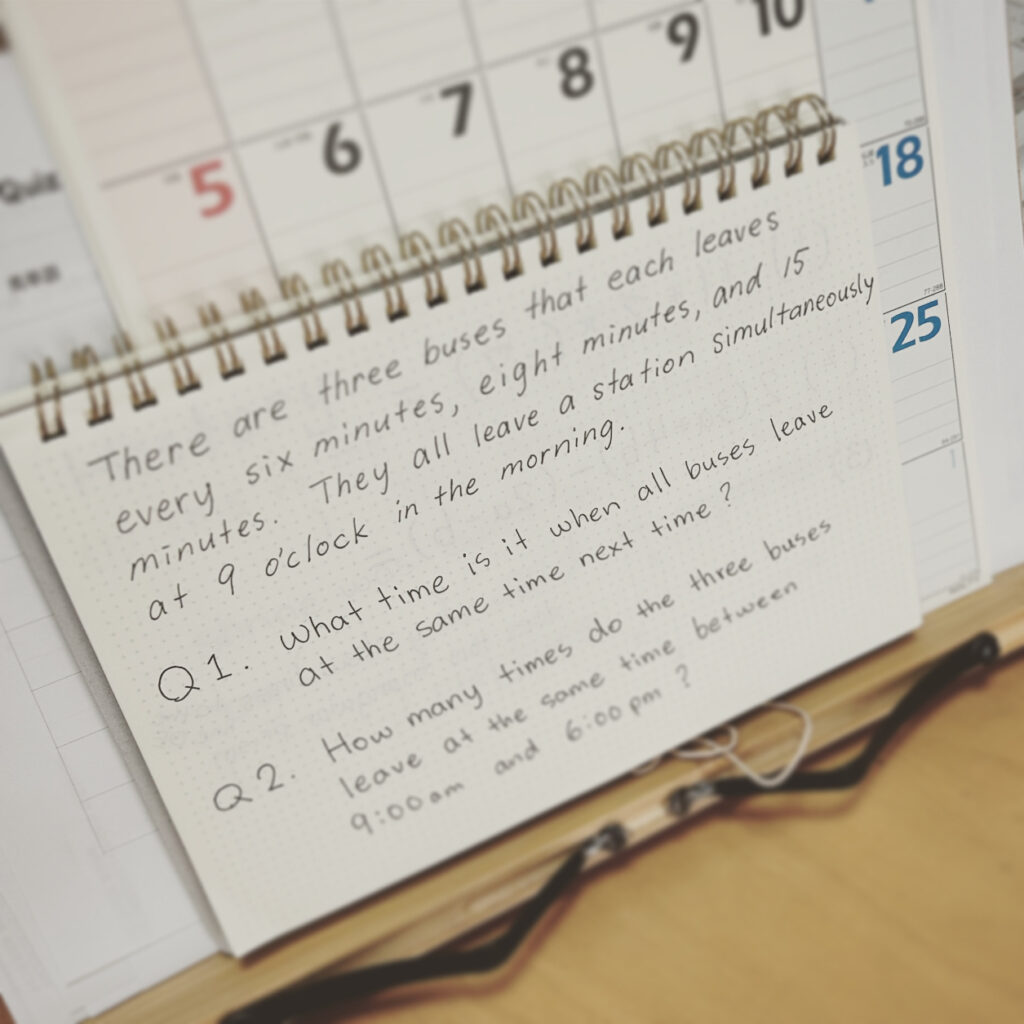 5 6 7 8 9 10
18
25
Quiz
There are three buses that each leaves
every six minutes, eight minutes, and 15
minutes. They all leave a station simultaneously
at 9 o'clock in the morning.
Q1. What time is it when all buses leave
at the same time next time?
Q2. How many times do the three buses
leave at the same time between
9:00am and 6:00pm?